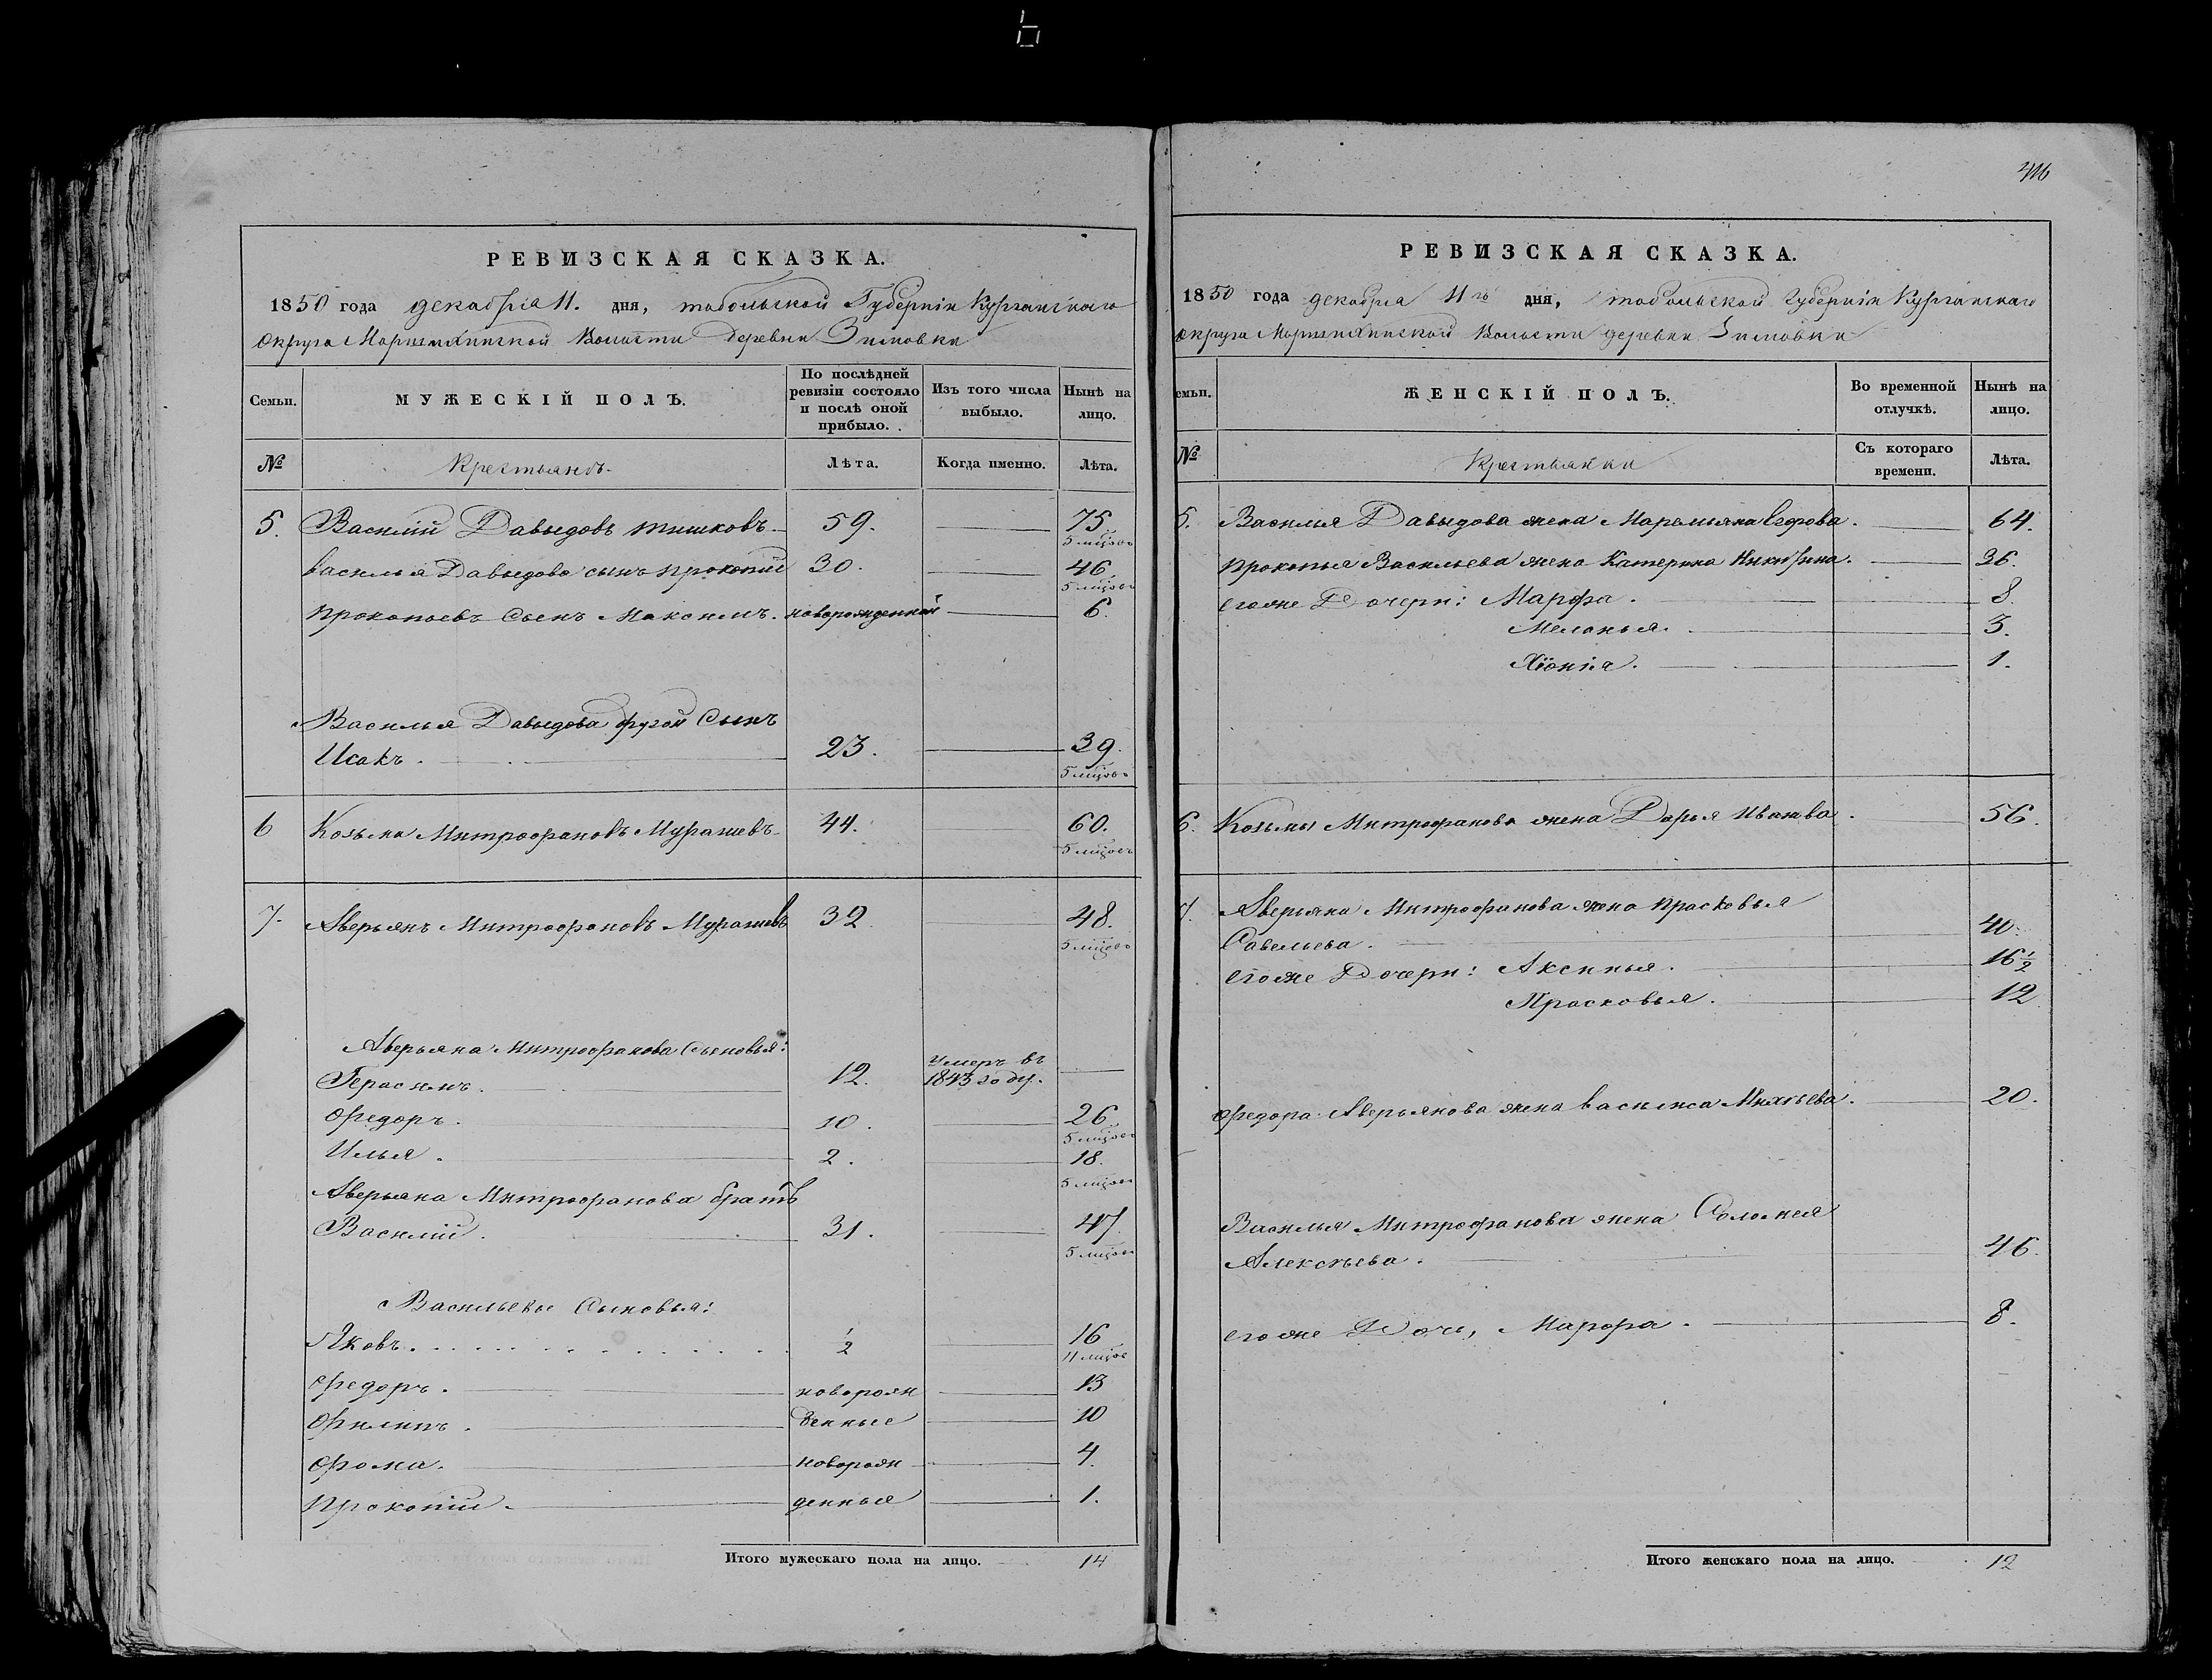 416
РЕВИЗСКАЯ СКАЗКА.
1850 года декабря 11. дня, тобольской Губерніи Курганскаго
округа Маршихинской Волости Деревни Зимовки
Семьи.
МУЖЕСКІЙ ПОЛЪ.
По послѣдней ревизіи состояло и послѣ оной прибыло.
Изъ того числа выбыло.
Нынѣ на лицо.
№ Крестьянъ. Лѣта. Когда именно. Лѣта.
5. Василій Давыдовъ тишковъ 59. 75.
5 мцовъ
василья Давыдова сынъ прокопій 30. 46.
5 мцовъ
прокопьевъ Сынъ Максимъ. новорожденной 6.
Василья Давыдова другой Сынъ
Исакъ. 23. 39.
5 мцовъ
6 Козьма Митрофановъ Мурашевъ 44. 60.
5 мцовъ
7. Аверьянъ Митрофановъ Мурашевъ 32 48.
5 мцовъ
Аверьяна Митрофанова Сыновья:
Герасимъ. 12. умеръ въ 1843 году.
Федоръ. 10. 26
5 мцовъ
Илья. 2. 18.
5 мцовъ
Аверьяна Митрофанова братъ
Василій. 31. 47
5 мцовъ
Васильевы Сыновья:
Яковъ. 1/2 16
11 мцовъ
Федоръ. новорож 13
Филипъ. денные 10
Фома. новорож 4.
Прокопій. денныя 1.
Итого мужескаго пола на лицо. 14
РЕВИЗСКАЯ СКАЗКА.
1850 года декабря 11го дня, тобольской Губерніи Курганскаго
округа Маршихинской Волости деревни Зимовки
емьи.
ЖЕНСКІЙ ПОЛЪ.
Во временной отлучкѣ.
Нынѣ на лицо.
№ Крестьянки Съ котораго времени. Лѣта.
5. Василья Давыдова жена Маремьяна Егорова. 64.
прокопья Васильева жена Катерина Никитина. 36.
егоже Дочери: Марфа. 8.
Меланья. 3.
Хіонія. 1.
6. Козьмы Митрофанова жена Дарья Иванова. 56.
7. Аверьяна Митрофанова жена прасковья
Савельева. 40.
егоже Дочери: Аксинья. 16 1/2
Прасковья. 12
Федора Аверьянова жена василиса 20.
Василья Митрофанова жена Соломея
Алексѣева. 46.
егоже Дочь, Марфа. 8.
Итого женскаго пола на лицо. 12